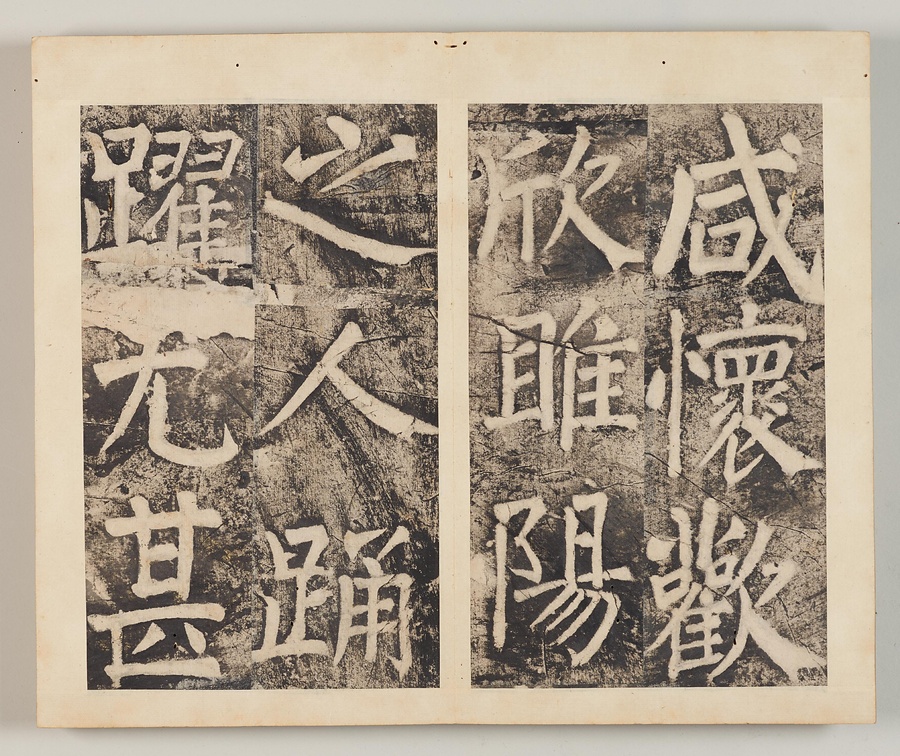 咸懷歡
欣睢陽
之人踊
躍尤甚